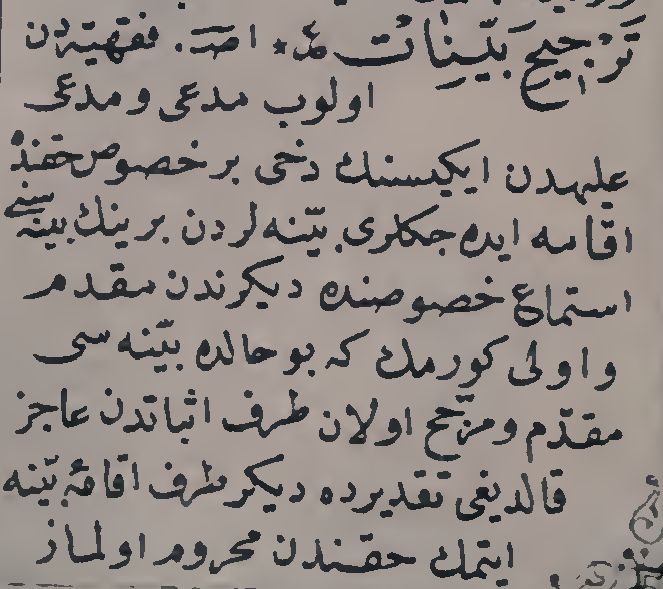 ترجيح بيّنات عد٭ اصـ. فقهيه‌دن
اولوب مدعى و مدعى
عليهدن ايكيسنك دخى بر خصوص حقنده
اقامه ايده جكلرى بيّنه لردن برينك بيّنه سنى
استماع خصوصنده ديكرندن مقدم
و اولى كورمك كه بو حالده بيّنه سى
مقدّم و مرجّح اولان طرف اثباتدن عاجز
قالديغى تقديرده ديكر طرف اقامهٔ بيّنه
ايتمك حقندن محروم اولماز